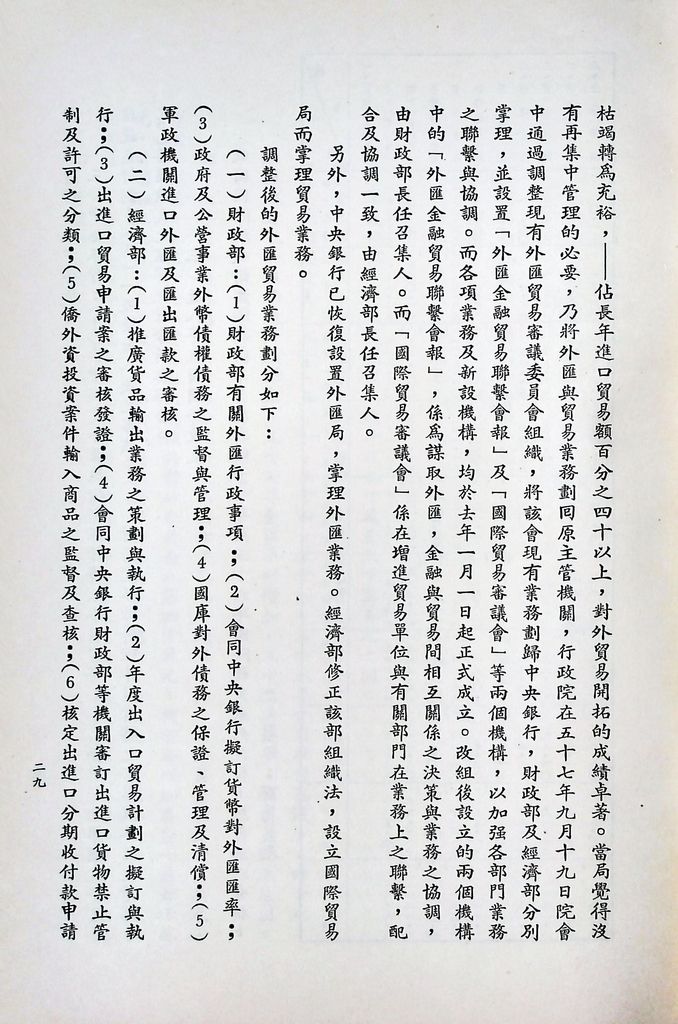 枯竭轉爲充裕，——佔長年進口貿易額百分之四十以上，對外貿易開拓的成績卓著。當局覺得沒
有再集中管理的必要，乃將外匯與貿易業務劃回原主管機關，行政院在五十七年九月十九日院會
中通過調整現有外匯貿易審議委員會組織，將該會現有業務劃歸中央銀行，財政部及經濟部分別
掌理，並設置「外匯金融貿易聯繫會報」及「國際貿易審議會」等兩個機構，以加强各部門業務
之聯繫與協調。而各項業務及新設機構，均於去年一月一日起正式成立。改組後設立的兩個機構
中的「外匯金融貿易聯繫會報」，係爲謀取外匯，金融與貿易間相互關係之決策與業務之協調，
由財政部長任召集人。而「國際貿易審議會」係在增進貿易單位與有關部門在業務上之聯繫，配
合及協調一致，由經濟部長任召集人。
另外，中央銀行已恢復設置外匯局，掌理外匯業務。經濟部修正該部組織法，設立國際貿易
局而掌理貿易業務。
調整後的外匯貿易業務劃分如下：
（一）財政部：（1）財政部有關外匯行政事項；（2）會同中央銀行擬訂貨幣對外匯匯率；
（3）政府及公營事業外幣債權債務之監督與管理；（4）國庫對外債務之保證、管理及清償；（5）
軍政機關進口外匯及匯出匯款之審核。
（二）經濟部：（1）推廣貨品輸出業務之策劃與執行；（2）年度出入口貿易計劃之擬訂與執
行；（3）出進口貿易申請案之審核發證；（4）會同中央銀行財政部等機關審訂出進口貨物禁止管
制及許可之分類；（5）僑外資投資案件輸入商品之監督及查核；（6）核定出進口分期收付款申請
二九